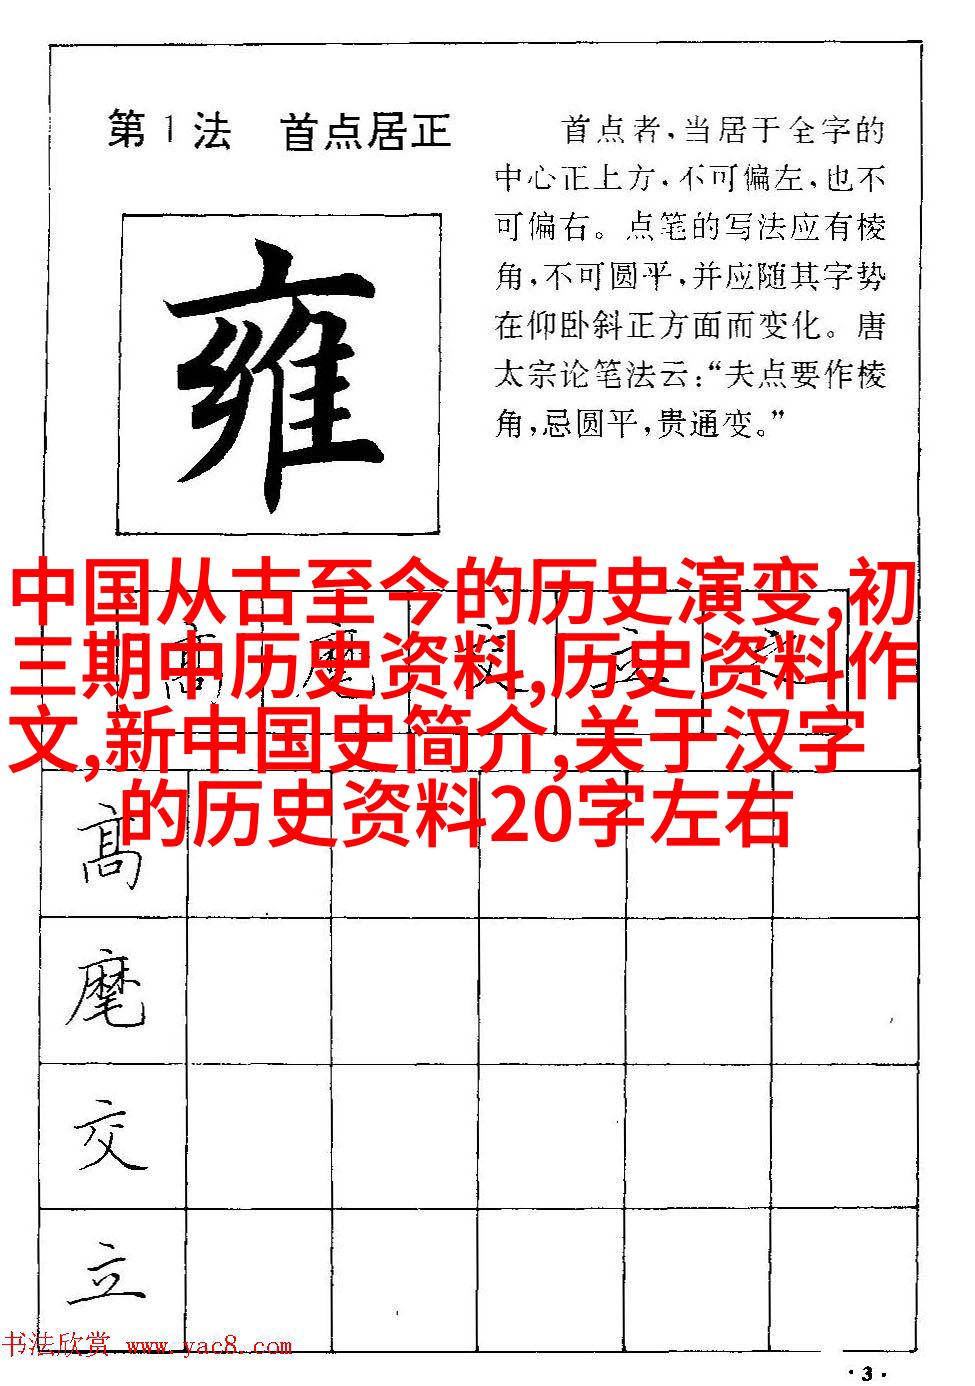 第1法 首点居正
首点者,当居于全字的
中心正上方,不可偏左,也不
可偏右。点笔的写法应有棱
角,不可圆平,并应随其字势
在仰卧斜正方面而变化。唐
太宗论笔法云:“夫点要作棱
角,忌圆平,贵通变。”
雍
中国从古至今的历史演变,初
三期中历史资料,历史资料作
文,新中国史简介,关于汉字
的历史资料20字左右
高 麾 交 立
高
麾
交
立
书法欣赏 www.yac8.com
·3·